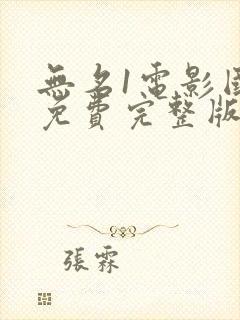 無名1電影国
免費完整版
張霖